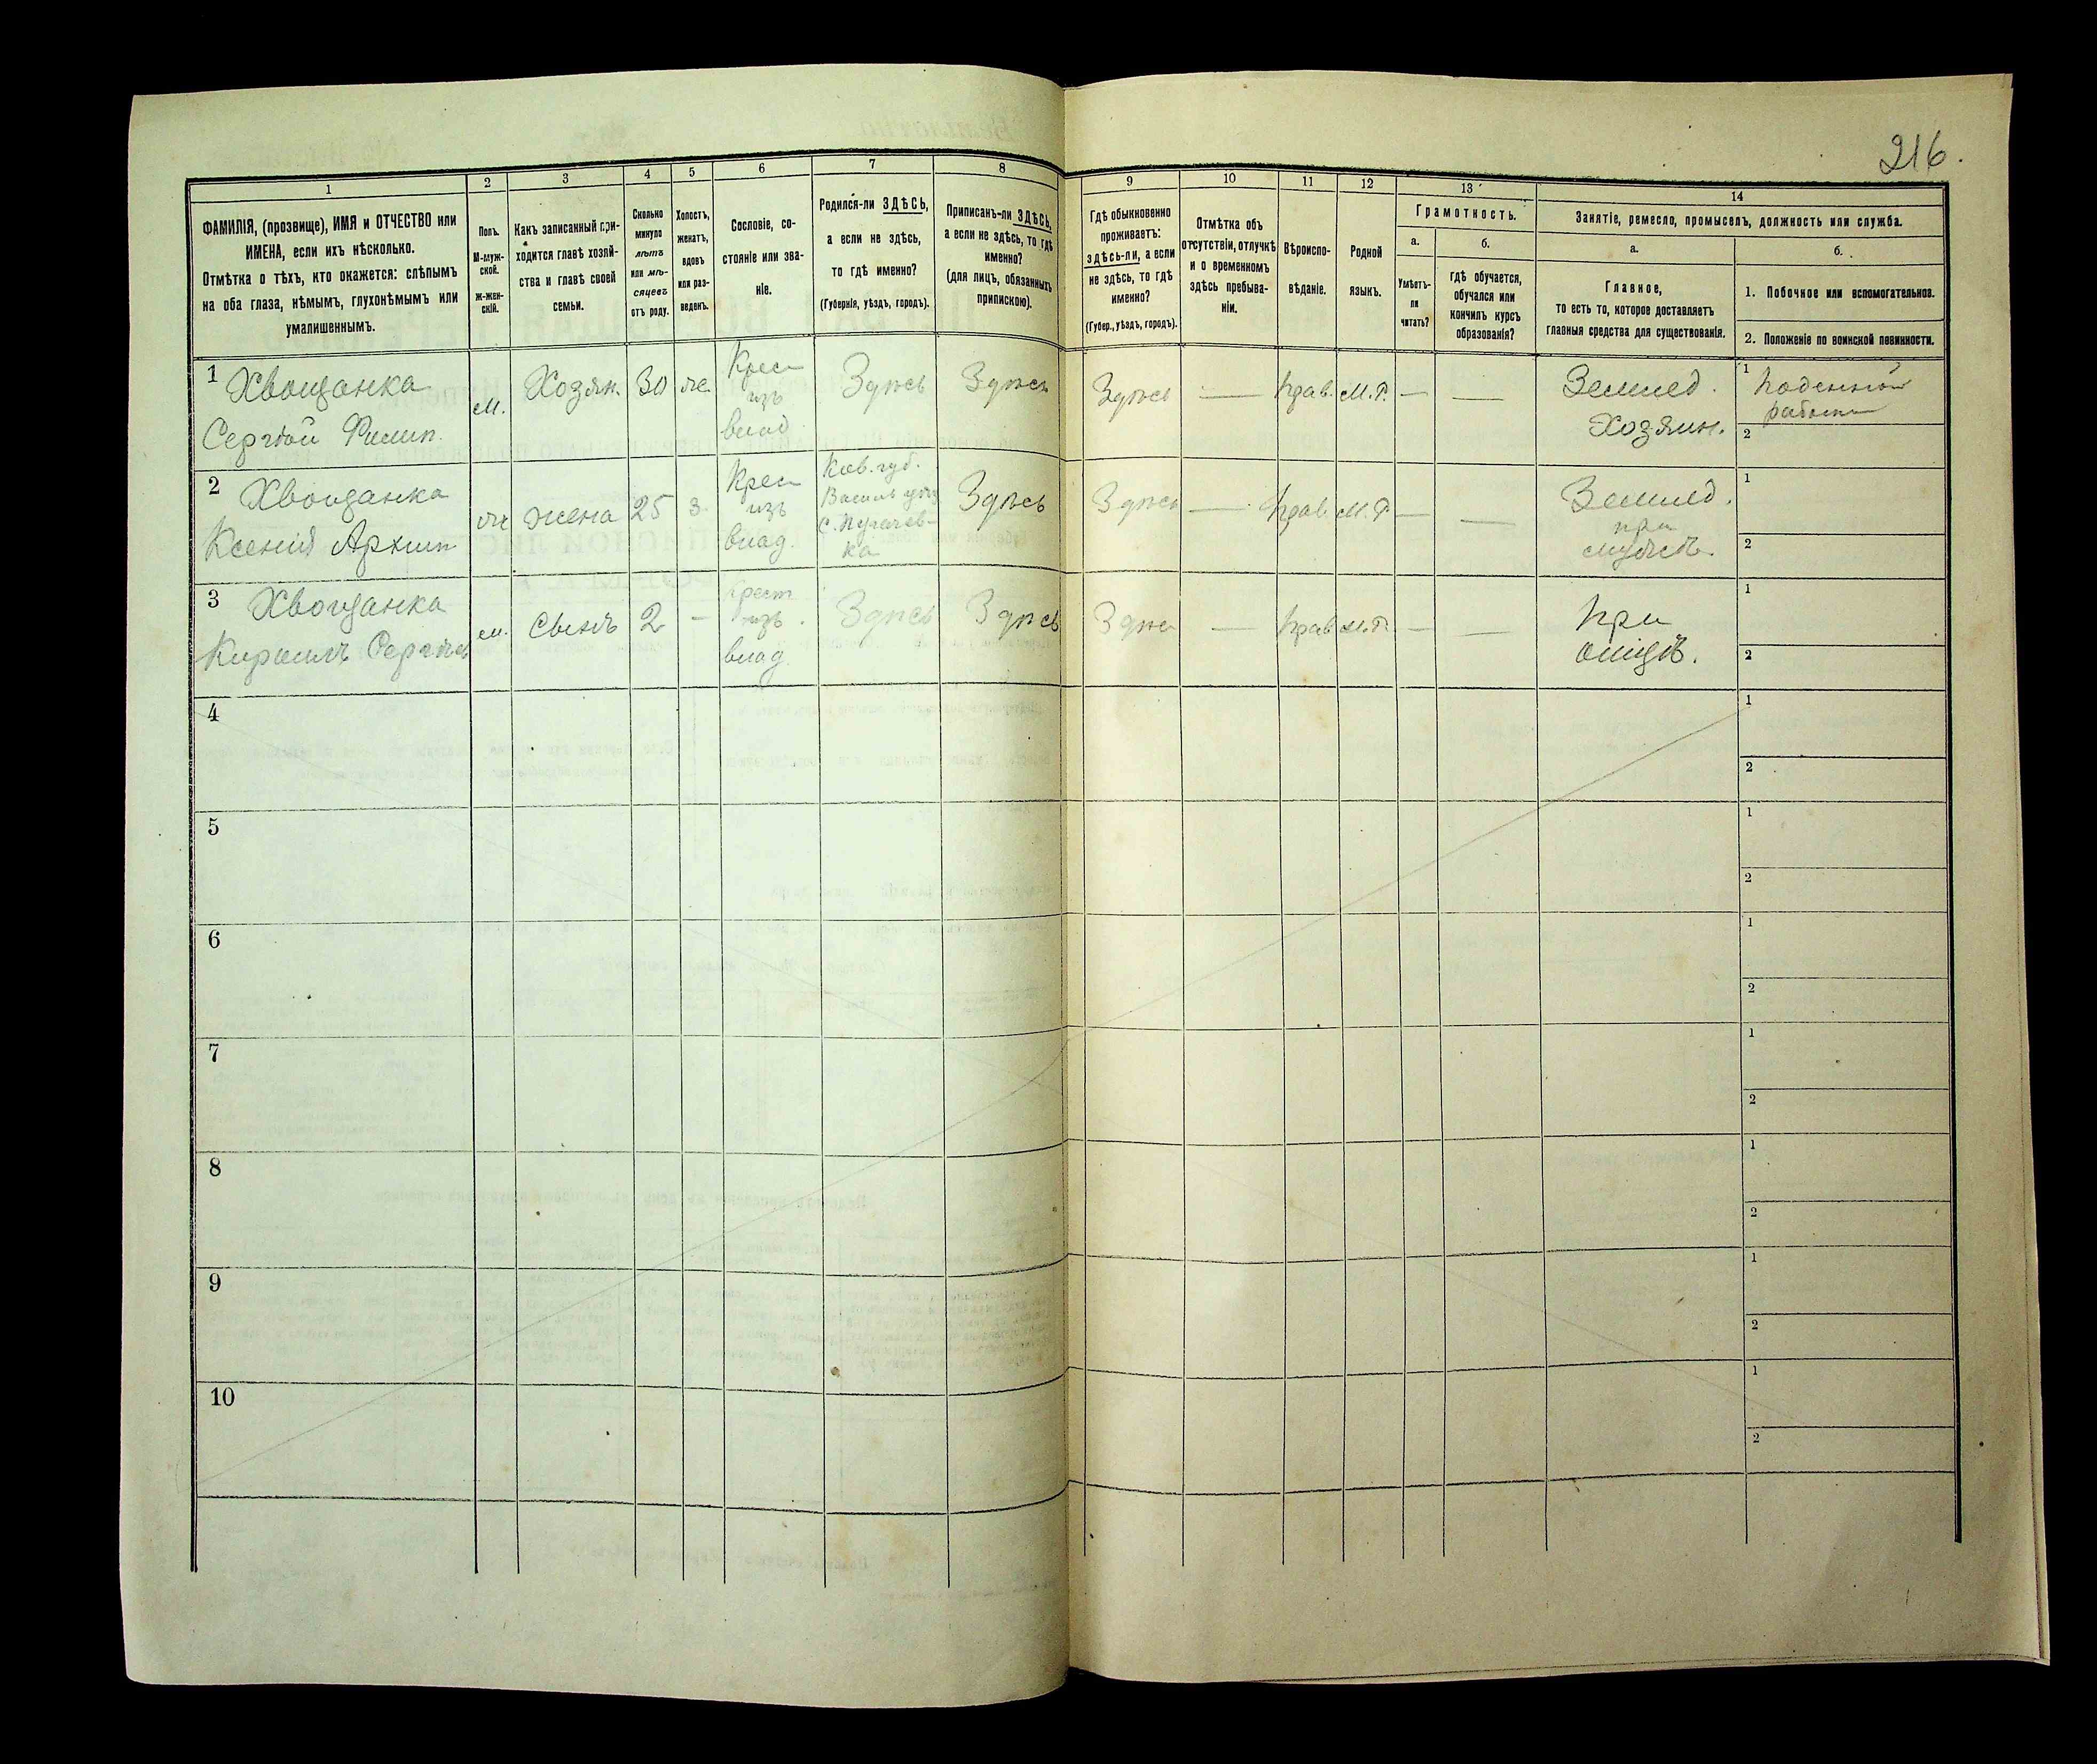 216.
1
2
3
4
5
6
7
8
9
10
11
12
13
14
ФАМИЛІЯ, (прозвище), ИМЯ и ОТЧЕСТВО или
ИМЕНА, если ихъ нѣсколько.
Отмѣтка о тѣхъ, кто окажется: слѣпымъ
на оба глаза, нѣмымъ, глухонѣмымъ или
умалишеннымъ.
Полъ.
М-муж-
ской.
ж-жен-
скій.
Какъ записанный при-
ходится главѣ хозяй-
ства и главѣ своей
семьи.
Сколько
минуло
лѣтъ
или мѣ-
сяцевъ
отъ роду.
Холостъ,
женатъ,
вдовъ
или раз-
веденъ.
Сословіе, со-
стояніе или зва-
ніе.
Родился-ли ЗДѢСЬ,
а если не здѣсь,
то гдѣ именно?
(Губернія, уѣздъ, городъ).
Приписанъ-ли ЗДѢСЬ,
а если не здѣсь, то гдѣ
именно?
(для лицъ, обязанныхъ
припискою).
Гдѣ обыкновенно
проживаетъ:
здѣсь-ли, а если
не здѣсь, то гдѣ
именно?
(Губер., уѣздъ, городъ).
Отмѣтка объ
отсутствіи, отлучкѣ
и о временномъ
здѣсь пребыва-
ніи.
Вѣроиспо-
вѣданіе.
Родной
языкъ.
Грамотность.
а.
Умѣетъ-
ли
читать?
б.
гдѣ обучается,
обучался или
кончилъ курсъ
образованія?
Занятіе, ремесло, промыселъ, должность или служба.
а.
Главное,
то есть то, которое доставляетъ
главныя средства для существованія.
б.
1. Побочное или вспомогательное.
2. Положеніе по воинской повинности.
1 Хвощанка
Сергѣй Филип.
м.
Хозяин.
30
же.
Крес
изъ
влад
Здѣсь
Здѣсь
Здѣсь
—
Прав.
М.Р.
—
—
Землед.
Хозяин.
1 Поденной
работы
2
2 Хвощанка
Ксенія Архип
ж
жена
25
з.
Крес
изъ
влад.
Киев. губ.
с. Пугачев-
ка
Здѣсь
Здѣсь
—
Прав.
М.Р.
—
—
Землед.
при
мужѣ.
1
2
3 Хвощанка
Кирилъ Сергѣев
м.
Сынъ
2
-
Крест
изъ
влад.
Здѣсь
Здѣсь
Здѣс
—
Прав
М.Р.
—
—
При
отцѣ.
1
2
4
1
2
5
1
2
6
1
2
7
1
2
8
1
2
9
1
2
10
1
2